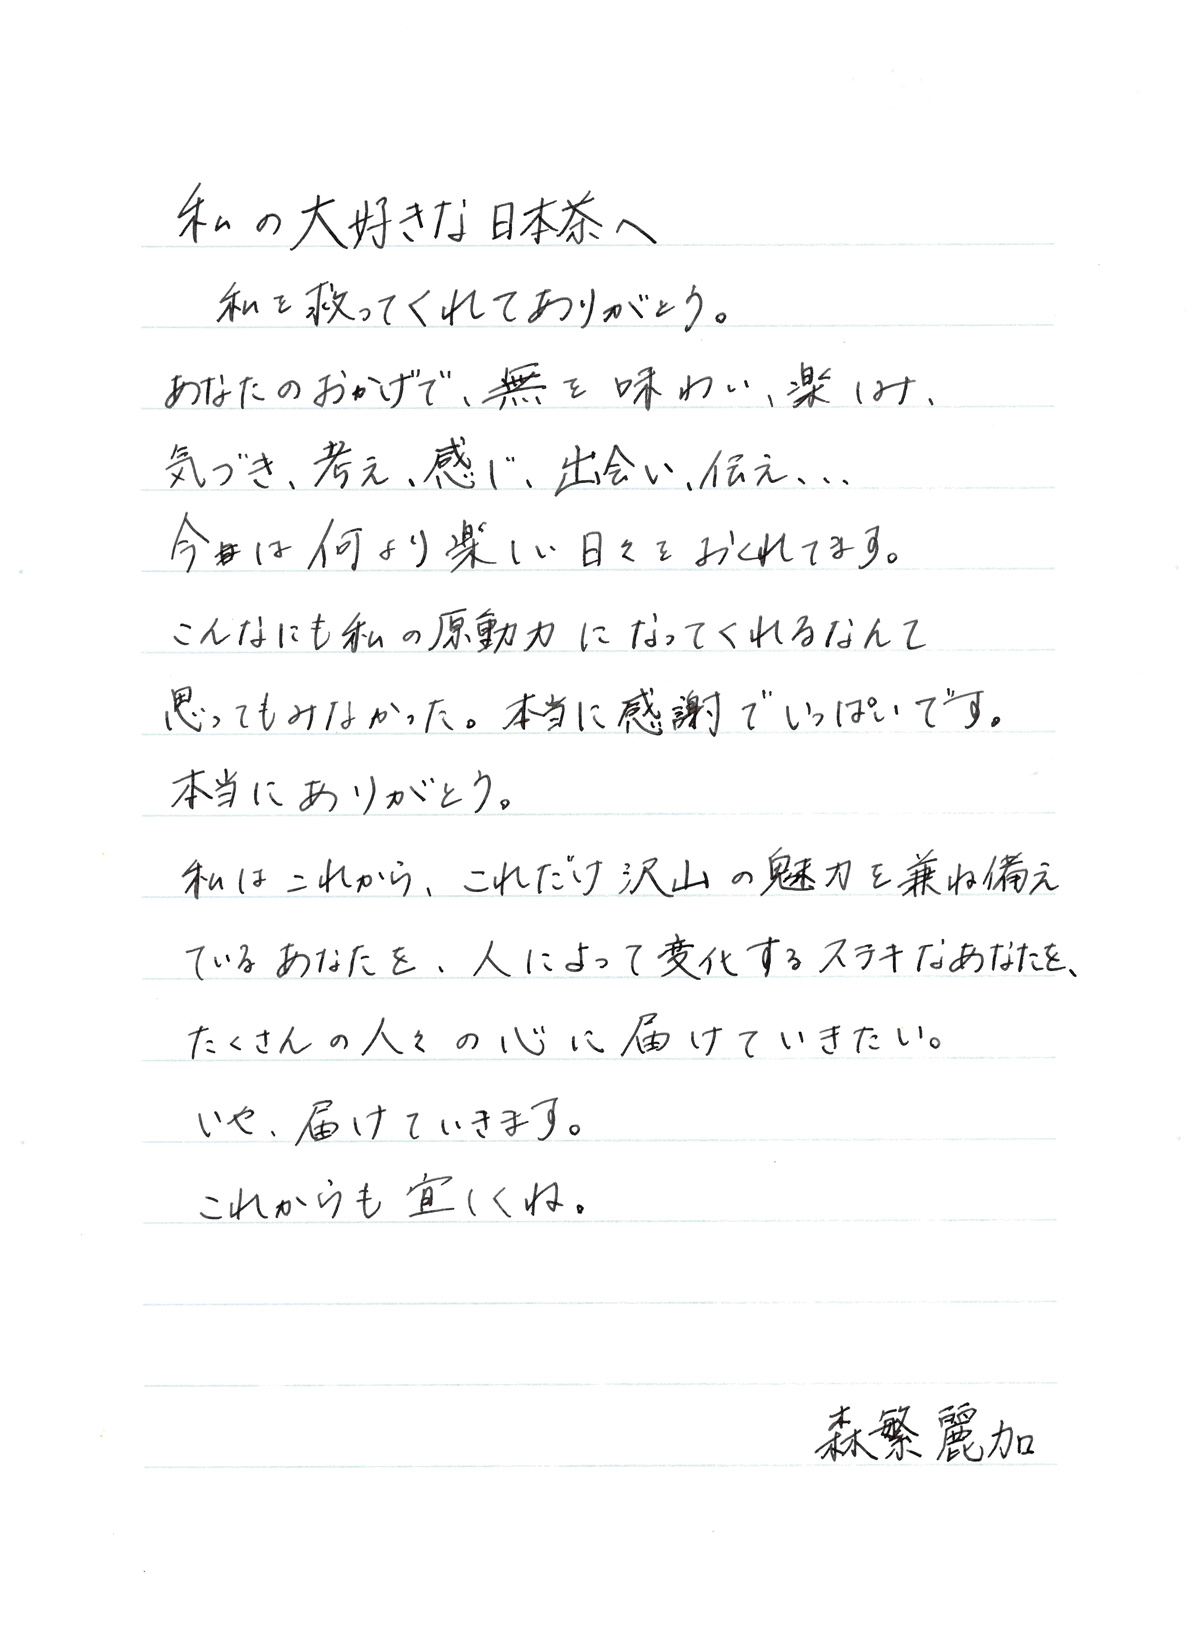 私の大好きな日本茶へ
私を救ってくれてありがとう。
あなたのおかげで、無を味わい、楽しみ、
気づき、考え、感じ、出会い、伝え、、、
今は何より楽しい日々をおくれてます。
こんなにも私の原動力になってくれるなんて
思ってもみなかった。本当に感謝でいっぱいです。
本当にありがとう。
私はこれから、これだけ沢山の魅力を兼ね備え
ているあなたを、人によって変化するステキなあなたを、
たくさんの人々の心に届けていきたい。
いや、届けていきます。
これからも宜しくね。
森繁麗加